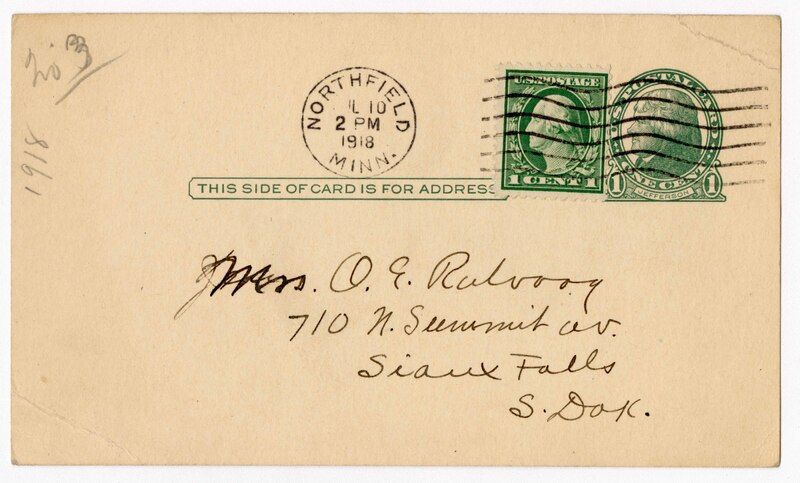 1918
NORTHFIELD
JL 10
2 PM
1918
MINN.
U.S. POSTAGE
1 CENT 1
U.S. POSTAL CARD
1 ONE CENT 1
JEFFERSON
THIS SIDE OF CARD IS FOR ADDRESS
Mrs. O. E. Rolvaag
710 N. Summit av.
Sioux Falls
S. Dak.